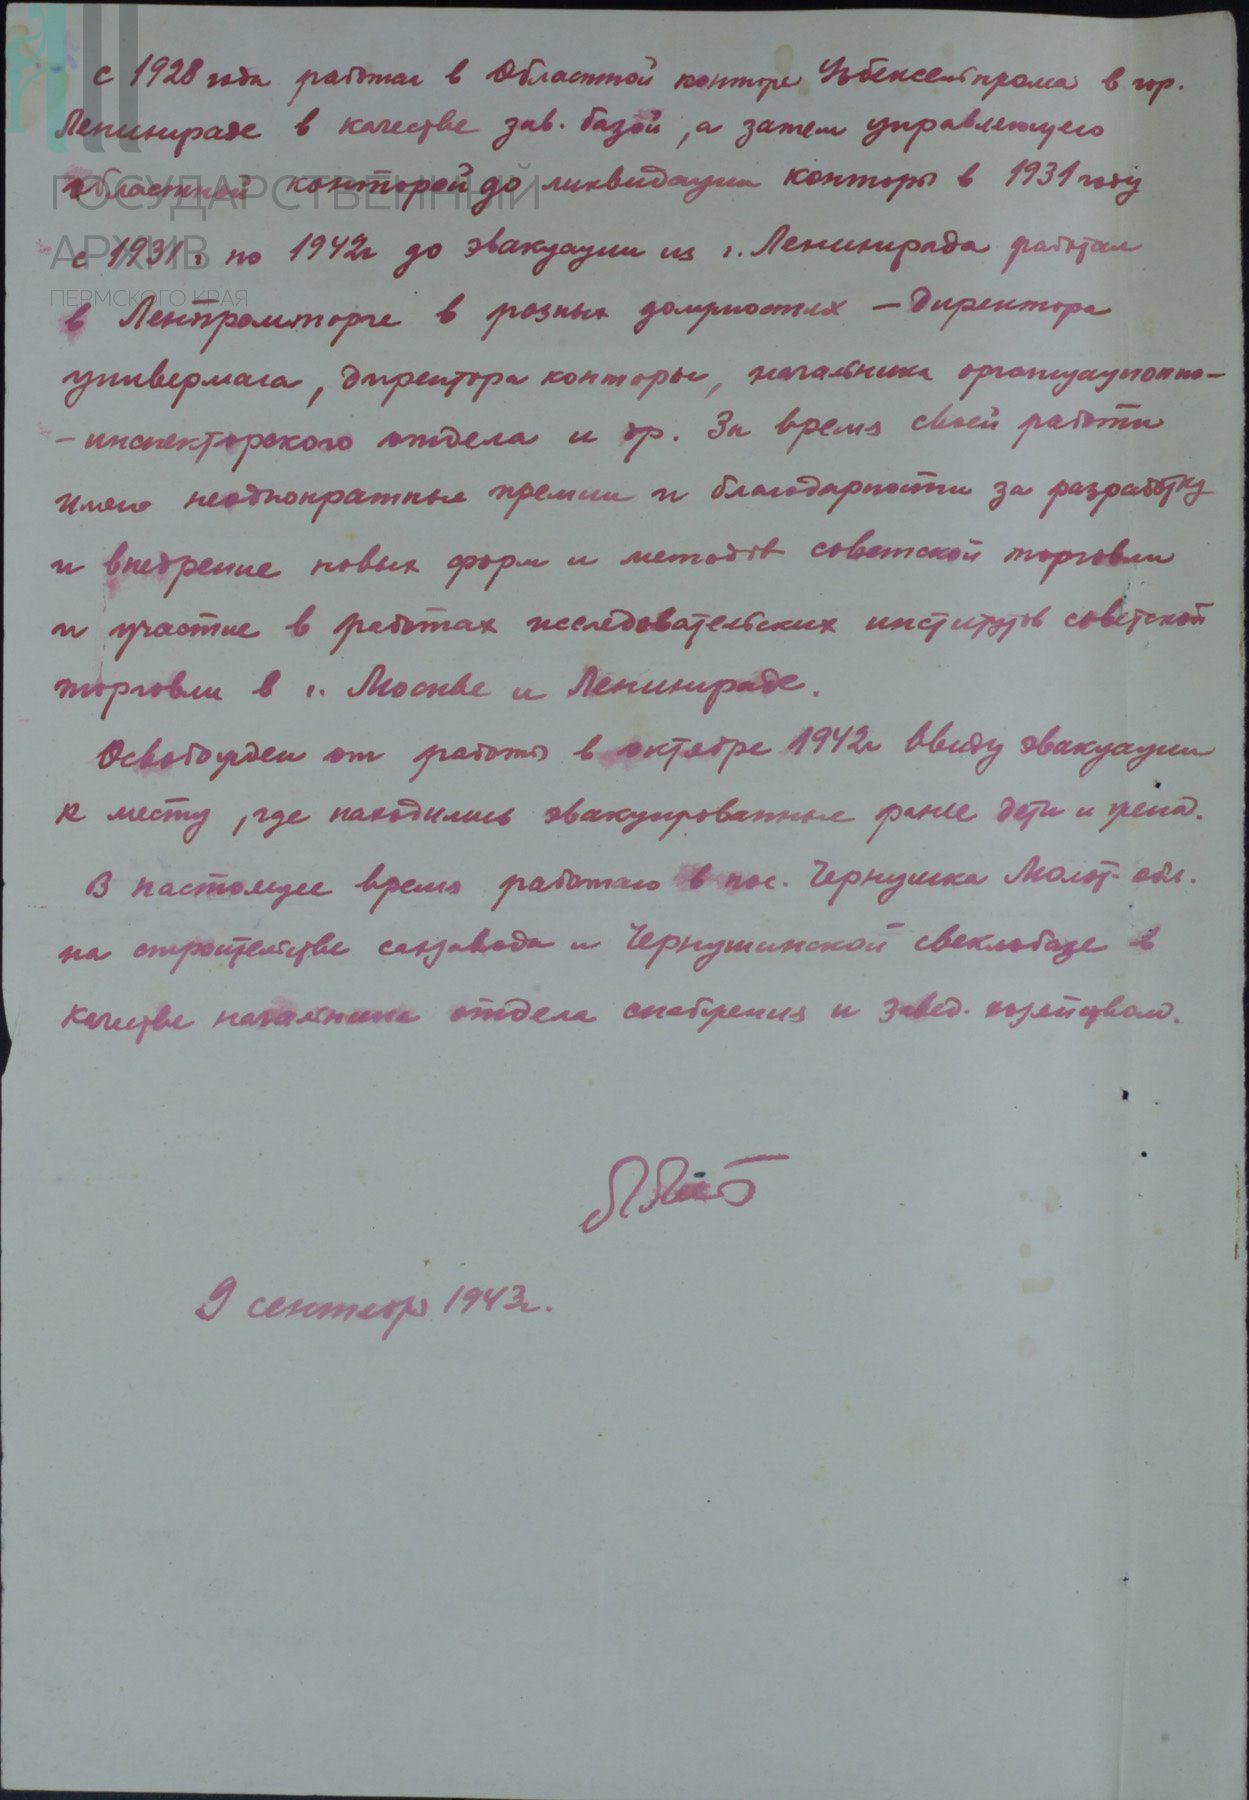 с 1928 года работал в Областной конторе Узбексельпрома в гор.
Ленинграде в качестве зав. базой, а затем управляющего
областной конторой до ликвидации конторы в 1931 году
ГОСУДАРСТВЕННЫЙ
АРХИВ
ПЕРМСКОГО КРАЯ
с 1931г. по 1942г до эвакуации из г. Ленинграда работал
в Ленпромторге в разных должностях — директора
универмага, директора конторы, начальника организационно-
-инспекторского отдела и др. За время своей работы
имею неоднократные премии и благодарности за разработку
и внедрение новых форм и методов советской торговли
и участие в работах исследовательских институтов советской
торговли в г. Москве и Ленинграде.
Освобожден от работы в октябре 1942г ввиду эвакуации
к месту, где находились эвакуированные ранее дети и жена.
В настоящее время работаю в пос. Чернушка Молот. обл.
на строительстве сахзавода и Чернушинской свеклобазе в
качестве начальника отдела снабжения и завед. хозяйством.
9 сентябр 1943г.